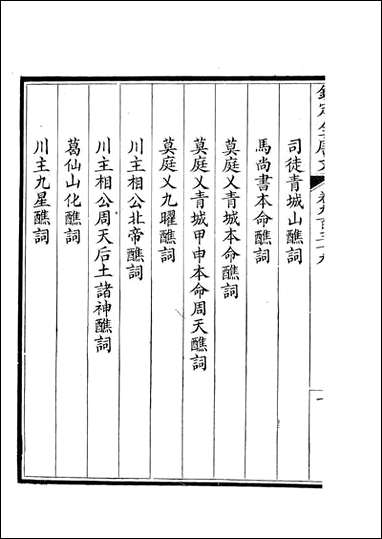 欽定全唐文 卷九百三十九 一
司徒青城山醮詞
馬尚書本命醮詞
莫庭乂青城本命醮詞
莫庭乂青城甲申本命周天醮詞
莫庭乂九曜醮詞
川主相公北帝醮詞
川主相公周天后土諸神醮詞
葛仙山化醮詞
川主九星醮詞